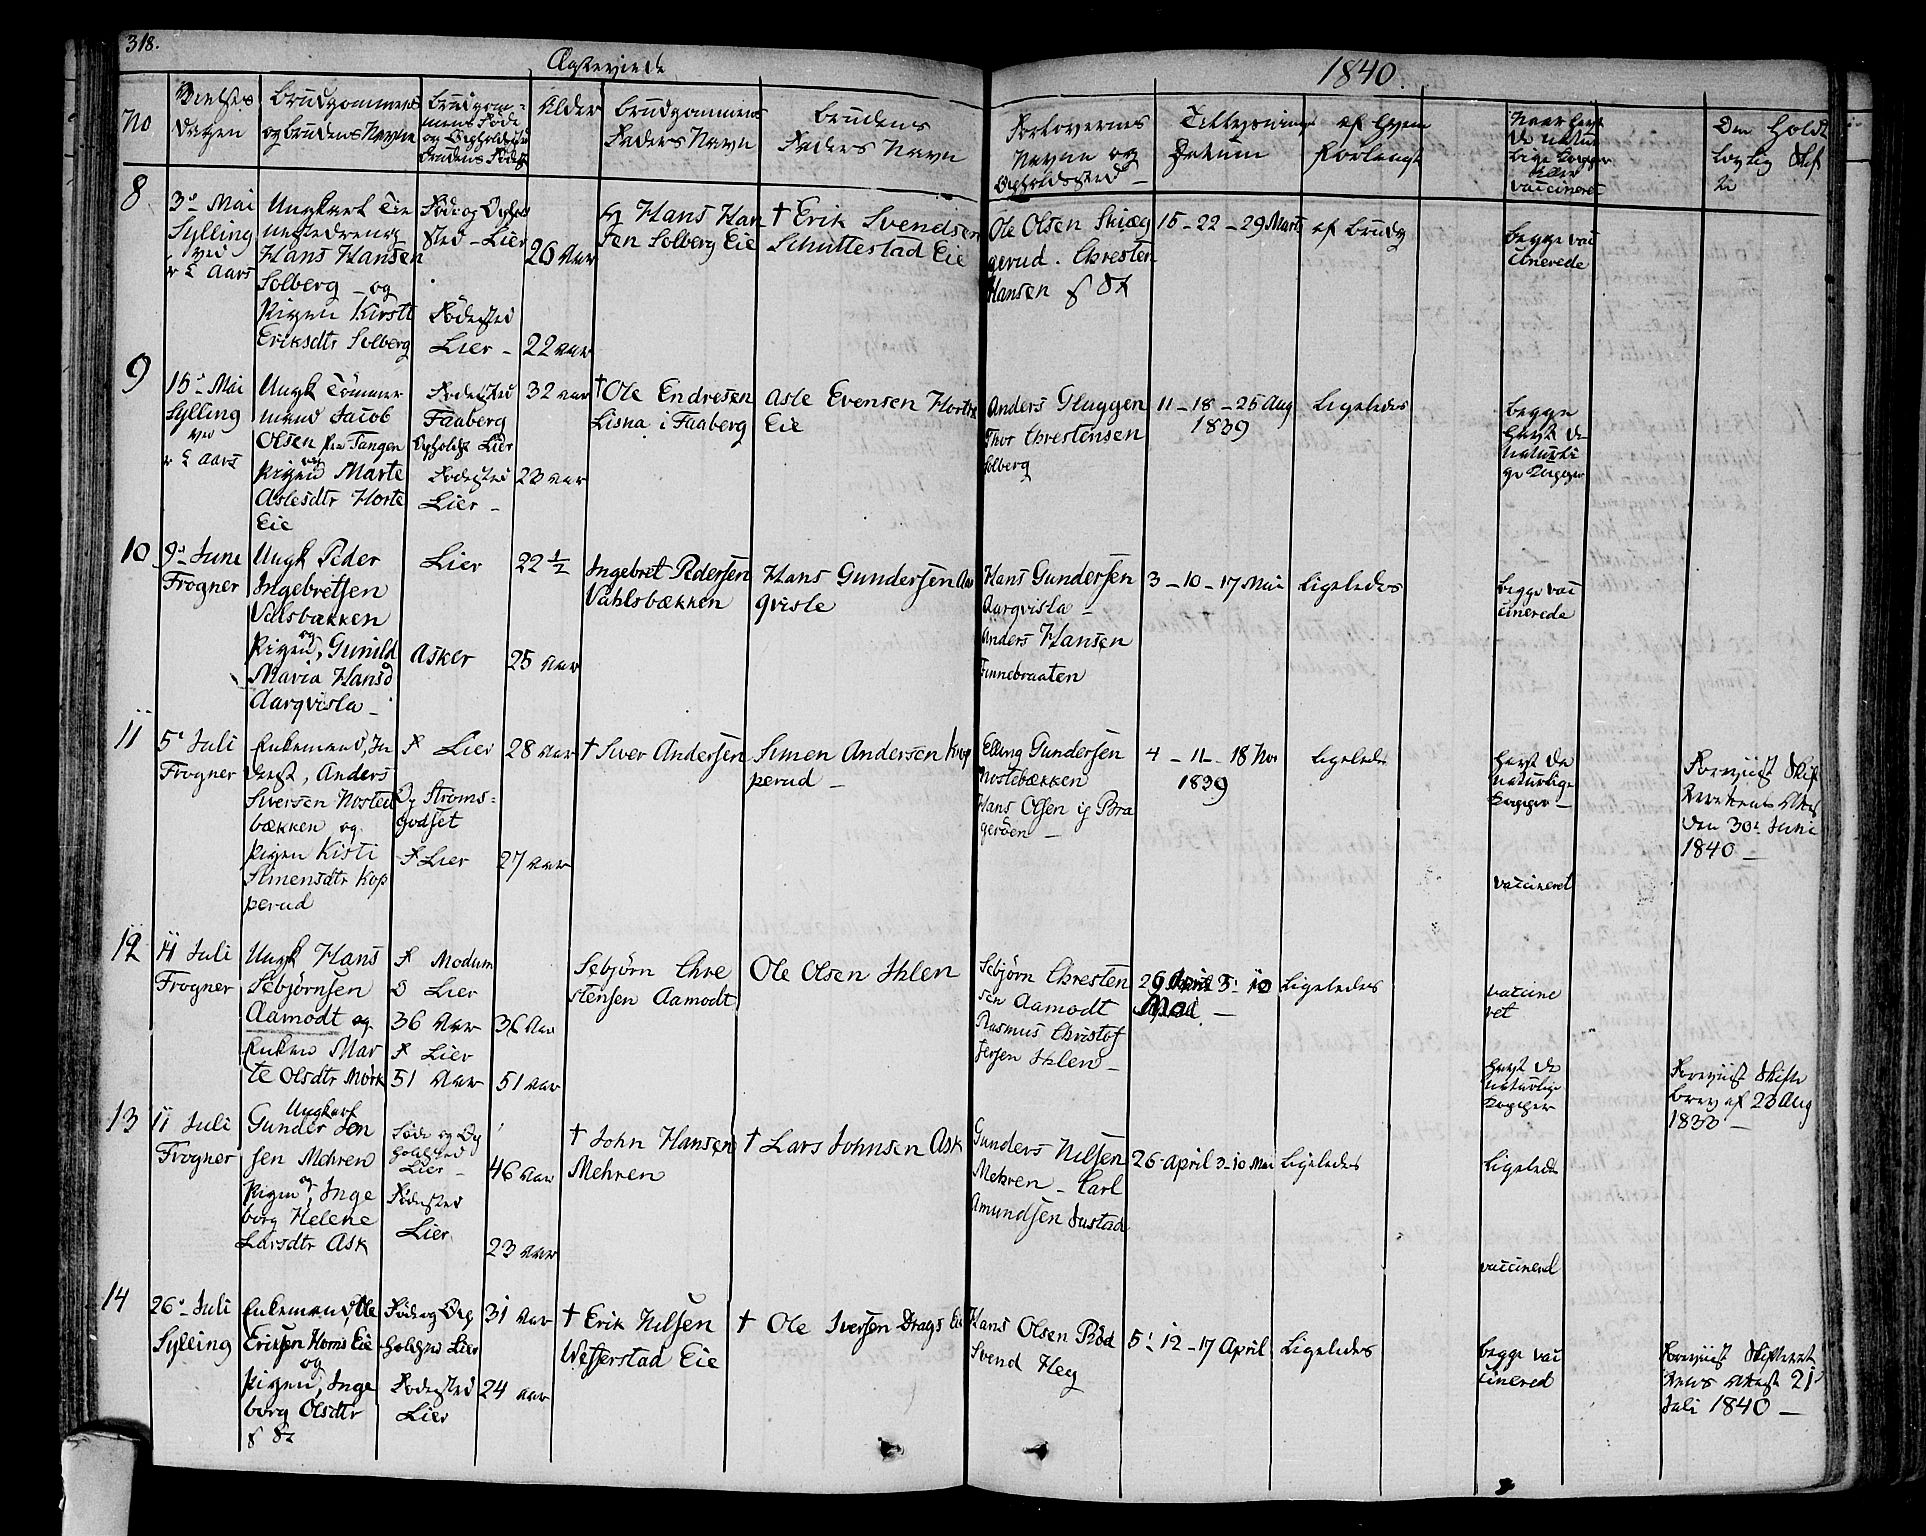 318.
Ægteviede
1840.
No
Vielses
Dagen
Brudgommens
og Brudens Navn
Brudgom-
mens Føde
og Opholdsted
Brudens Føde
Alder
Brudgommens
Faders Navn
Brudens
Faders Navn
Forlovernes
Navne og
Opholdsted
Tillysnings
Datum
af hvem
Forlangt
Naar havt
de natur
lige Kopper
eller
vaccineret
Om Holdt
lovlig Skif
te
8
3die Mai
Sylling
Ungkarl Tje
nestedreng
Hans Hansen
Solberg - og
Pigen Kirsti
Eriksdtr Solberg
Føde og Ophol
sted - Lier
Fødested
Lier -
26 Aar
22 Aar
Hans Han
sen Solberg Eie
† Erik Svendsen
Schuttestad Eie
Ole Olsen Skiæg
gerud. Chresten
Hansen
15 - 22 - 29 Marts
af Brudg
begge vac
cinerede
9
15 Mai
Sylling
Ungk Tømmer
mand Jacob
Olsen fra Tangen
og
Pigen Marte
Aslesdtr Horte
Eie
Fødested
Faaberg
Opholds Lier
Fødested
Lier -
32 Aar
23 Aar
† Ole Endresen
Lisna i Faaberg
Asle Evensen Horte
Eie
Anders Gluggen
Thor Chrestensen
Solberg
11 - 18 - 25 Aug
1839
Ligeledes
begge
havt de
naturli
ge Kopper
10
9de June
Frogner
Ungk Peder
Ingebretsen
Valsbækken
og
Pigen, Gunild
Maria Hansd
Aarqvisla -
Lier
Asker
22 ½
25 Aar
Ingebret Pedersen
Vahlsbækken
Hans Gundersen Aar
qvisle
Hans Gundersen
Aarqvisla -
Anders Hansen
Finnebraaten
3 - 10 - 17 Mai
Ligeledes
begge vac
cinerede
11
5 Juli
Frogner
Enkemand, In
derst, Anders
Siversen Nosted
bækken og
Pigen Kisti
Simensdtr Kop
perud
F Lier
Op Stroms-
godset
F Lier
28 Aar
27 Aar
† Siver Andersen
Simen Andersen Kop
perud -
Elling Gundersen
Nostebækken
Hans Olsen ig Bra
gerøen -
4 - 11 - 18 Nov
1839
Ligelede
havt de
naturlige
Kopper -
vaccineret
Foreviist Skif
den 30te Juni
1840 -
12
11 Juli
Frogner
Ungk Hans
Sebjørnsen
Aamodt og
Enken Mar
te Olsdtr Mørk
F Modum
O Lier
36 Aar
F Lier
51 Aar
36 Aar
51 Aar
Sebjørn Chre
stensen Aamodt
Ole Olsen Ihlen
Sebjørn Chresten
sen Aamodt
Rasmus Christof
fersen Ihlen -
26 April 3 - 10
Mai -
Ligeledes
vaccine
ret
havt de
naturlige
Kopper
Foreviist Skifte
brev af 23 Aug
1833 -
13
11 Juli
Frogner
Ungkarl
Gunder Jon
sen Mehren
og
Pigen, Inge
borg Helene
Larsdtr Ask
Føde og Op
holdsted
Lier -
Fødested
Lier
46 Aar
23 Aar
† John Hansen
Mehren
† Lars Johnsen Ask
Gunders Nilsen
Mehren - Carl
Amundsen Justad
26 April 3 - 10 Mai
Ligeledes
Ligelede
vaccined
14
26 Juli
Sylling
Enkemand, Ole
Eriksen Horns Eie
og
Pigen, Inge
borg Olsdtr
Føde og Op
holdsted Lier
Fødested
Lier
31 Aar
24 Aar
† Erik Nilsen
Wefferstad Eie
† Ole Iversen Drags Eie
Hans Olsen Rød
Svend Heg
5 - 12 - 17 April
Ligeledes
begge vac
cinered
Foreviist Skifteret
tens Attest 21
Juli 1840 -